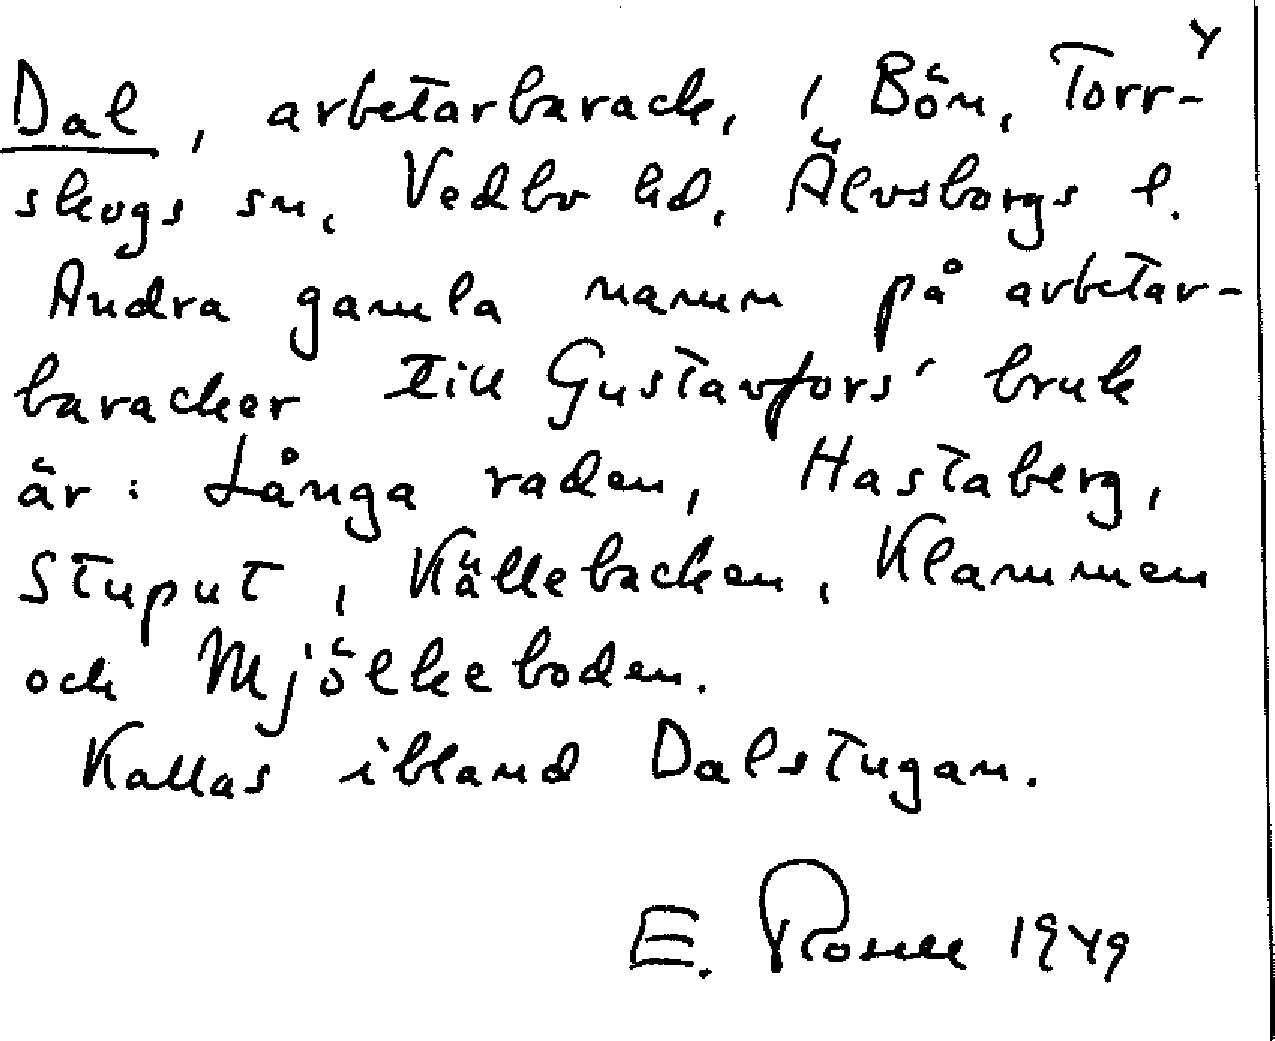 Dal, arbetarbarack, i Bön, Torr-
skogs sn, Vedbo hd, Älvsborgs l.
Andra gamla namn på arbetar-
baracker till Gustavfors' bruk
är: Långa raden, Hastaberg,
Stuput, Källebacken, Klammen
och Mjölkeboden.
Kallas ibland Dalstugan.
E. Rosell 1949